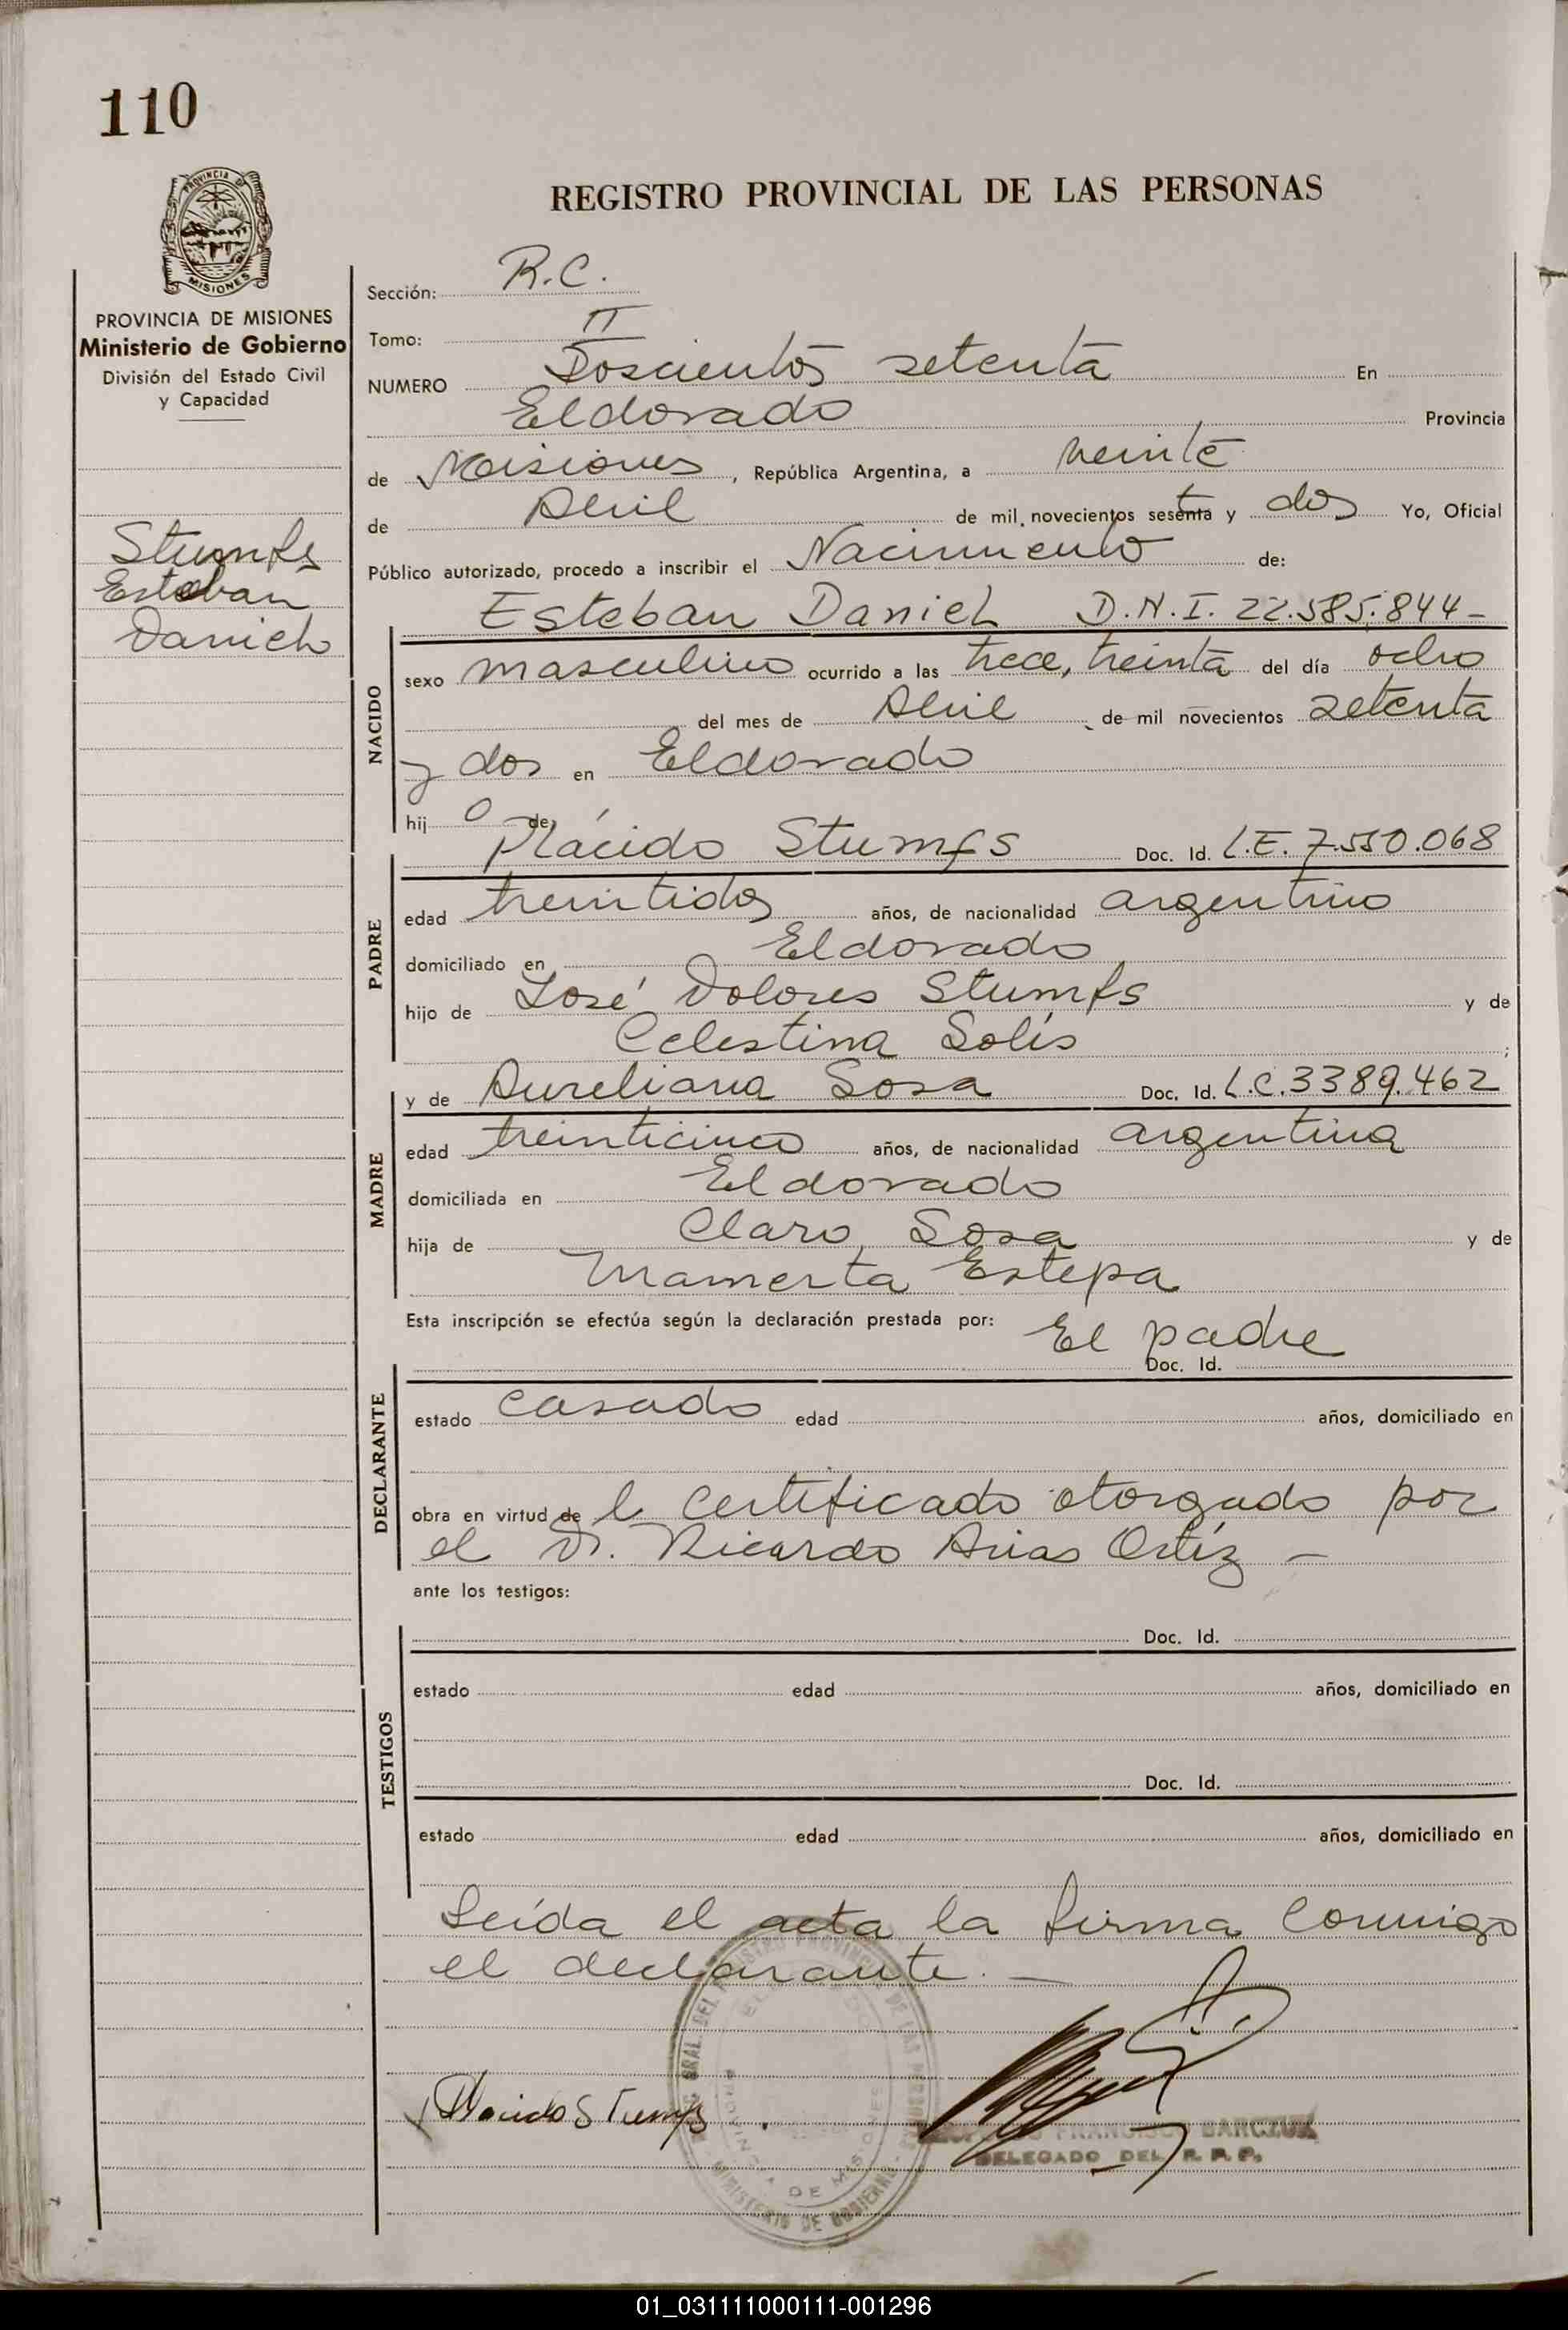 110
PROVINCIA DE
MISIONES
REGISTRO PROVINCIAL DE LAS PERSONAS
PROVINCIA DE MISIONES
Ministerio de Gobierno
División del Estado Civil
y Capacidad
Stumfs
Esteban
Daniel
Sección: R.C.
Tomo: II
NUMERO Doscientos setenta En
Eldorado Provincia
de Misiones, República Argentina, a veinte
de Abril de mil novecientos sesenta y dos Yo, Oficial
Público autorizado, procedo a inscribir el Nacimiento de:
Esteban Daniel D.N.I. 22.585.844-
NACIDO
sexo masculino ocurrido a las trece, treinta del día ocho
del mes de Abril de mil novecientos setenta
y dos en Eldorado
hijo de
Plácido Stumfs Doc. Id. L.E. 7.550.068
PADRE
edad treintidos años, de nacionalidad argentino
domiciliado en Eldorado
hijo de José Dolores Stumfs y de
Celestina Solís ;
y de Aureliana Sosa Doc. Id. L.C. 3389.462
MADRE
edad treinticinco años, de nacionalidad argentina
domiciliada en Eldorado
hija de Claro Sosa y de
Mamerta Estepa
Esta inscripción se efectúa según la declaración prestada por: El padre
Doc. Id.
DECLARANTE
estado casado edad años, domiciliado en
obra en virtud de l certificado otorgado por
el Dr. Ricardo Arias Ortíz -
ante los testigos:
Doc. Id.
TESTIGOS
estado edad años, domiciliado en
Doc. Id.
estado edad años, domiciliado en
Leída el acta la firma conmigo
el declarante. -
Placido Stumfs
FRANCISCO BARCZUK
DELEGADO DEL R. P. P.
GRAL. DEL REGISTRO PROVINCIAL DE LAS PERSONAS
MINISTERIO DE GOBIERNO
PROVINCIA DE MISIONES
01_031111000111-001296